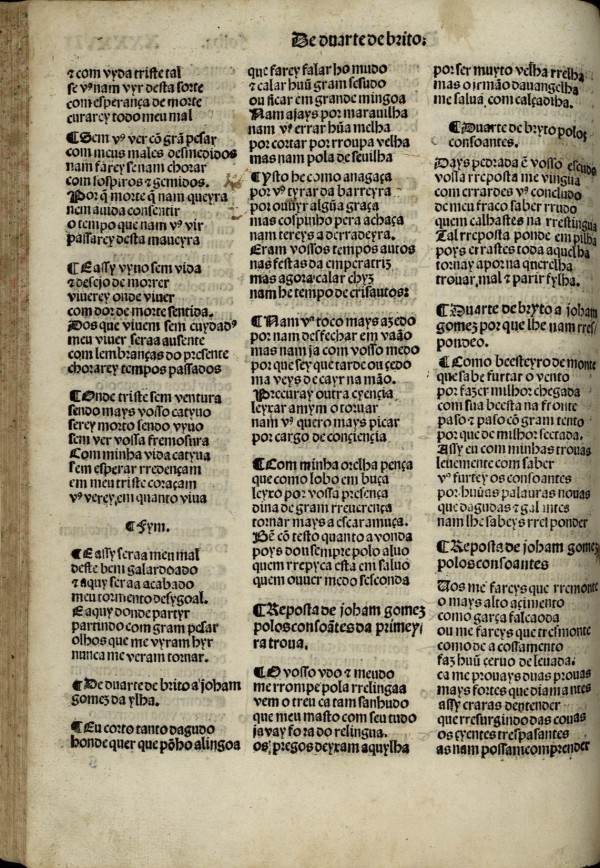 De duarte de brito.
⁊ com vyda triste tal
se vꝰ nam vyr desta sorte
com esperança de morte
curarey todo meu mal
¶ Sem vꝰ ver cõ grã pesar
com meus males desmedidos
nam farey se nam chorar
com sospiros ⁊ gemidos.
Por q̃ morte q̃ nam queyra
nem auida consentir
o tempo que nam vꝰ vir
passarey desta maneyra
¶ E assy vyuo sem vida
⁊ desejo de morrer
viuerey onde viuer
com dor de morte sentida.
Dos que viuem sem cuydadꝰ
meu viuer seraa ausente
com lembranças do presente
chorarey tempos passados
¶ Onde triste sem ventura
sendo mays vosso catyuo
serey morto sendo vyuo
sem ver vossa fremosura
Com minha vida catyua
sem esperar rredençam
em meu triste coraçam
vꝰ verey, em quanto viua
¶ Fym.
¶ E assy seraa meu mal
deste bem galardoado
⁊ aquy seraa acabado
meu tormento desygoal.
E aquy donde partyr
partindo com gram pesar
olhos que me vyram hyr
nunca me veram tornar.
¶ De duarte de brito a joham
gomez da ylha.
¶ Eu corto tanto dagudo
honde quer que põho a lingoa
que farey falar ho mudo
⁊ calar huũ gram sesudo
ou ficar em grande mingoa
Nam ajays por marauilha
nam vꝰ errar hũa melha
por cortar por rroupa velha
mas nam pola de seuilha
¶ Ysto he como anagaça
por vꝰ tyrar da barreyra
por ouuyr algũa graça
mas cospinho pera achaça
nam tereys a derradeyra.
Eram vossos tempos autos
nas festas da emperatriz
mas agora calar chyz
nam he tempo de crisautos:
¶ Nam vꝰ toco mays azedo
por nam desfechar em vaão
mas nam ja com vosso medo
por que sey que tarde ou çedo
ma veys de cayr na mão.
Precuray outra cyençia
leyxar a mym o tornar
nam vꝰ quero mays picar
por cargo de conçiençia
¶ Com minha orelha pença
que como lobo em buça
leyxo por vossa presença
dina de gram rreuerença
tornar mays a escaramuça.
Bẽ cõ testo quanto a vonda
poys dou sempre polo aluo
quem rrepyca esta em saluo
quem ouuer medo sesconda
¶ Reposta de joham gomez
polos consoãtes da primey-
ra troua.
¶ O vosso vdo ⁊ meudo
me rrompe pola rrelingaa
vem o treu ca tam sanhudo
que meu masto com seu tudo
ja vay fora do relingua.
os pregos deyxam aquylha
por ser muyto velha rrelha
mas o irmão dauangelha
me salua, com calçadilha.
¶ Duarte de bryto polos
consoantes.
Days pedrada ẽ vosso escudo
vossa rreposta me vingua
com errardes vꝰ concludo
de meu fraco saber rrudo
quem calhastes na rrestingua
Tal rreposta ponde em pilha
poys errastes toda aquelha
tornay apor na querelha
trouar, mal ⁊ parir fylha.
¶ Duarte de bryto a joham
gomez por que lhe nam rres-
pondeo.
¶ Como beesteyro de monte
que sabe furtar o vento
por fazer milhor chegada
com sua beesta na fronte
paso ⁊ paso cõ gram tento
por que de milhor seetada.
Assy eu com minhas trouas
leuemente com saber
vꝰ furtey os consoantes
por huũas palauras nouas
que dagudas ⁊ galantes
nam lhe sabeys rresponder
¶ Reposta de joham gomez
polos consoantes
Uos me fareys que rremonte
o mays alto açimento
como garça falcaoda
ou me fareys que tresmonte
como de a cossamento
faz huũ çeruo de leuada.
ca me prouays duas prouas
mays fortes que diamantes
assy craras dentender
que rresurgindo das couas
os çyentes trespasantes
as nam possam comprender